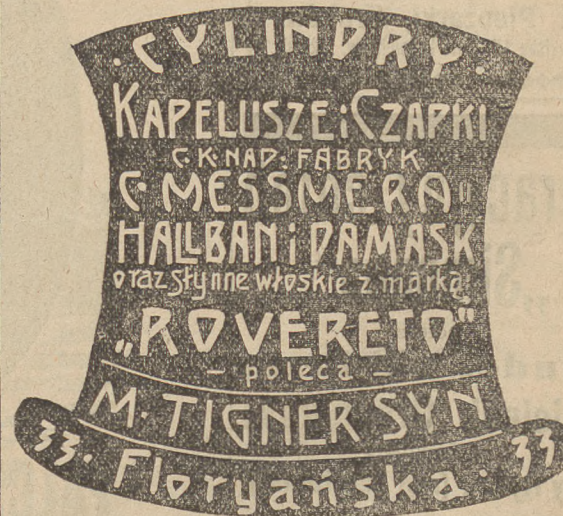 · CYLINDRY ·
KAPELUSZE i CZAPKI
C. K. NAD: FABRYK
C. MESSMERA
HALLBAN i DAMASK
oraz słynne włoskie z marką:
„ROVERETO"
— poleca —
M. TIGNER SYN
33. Floryańska. 33